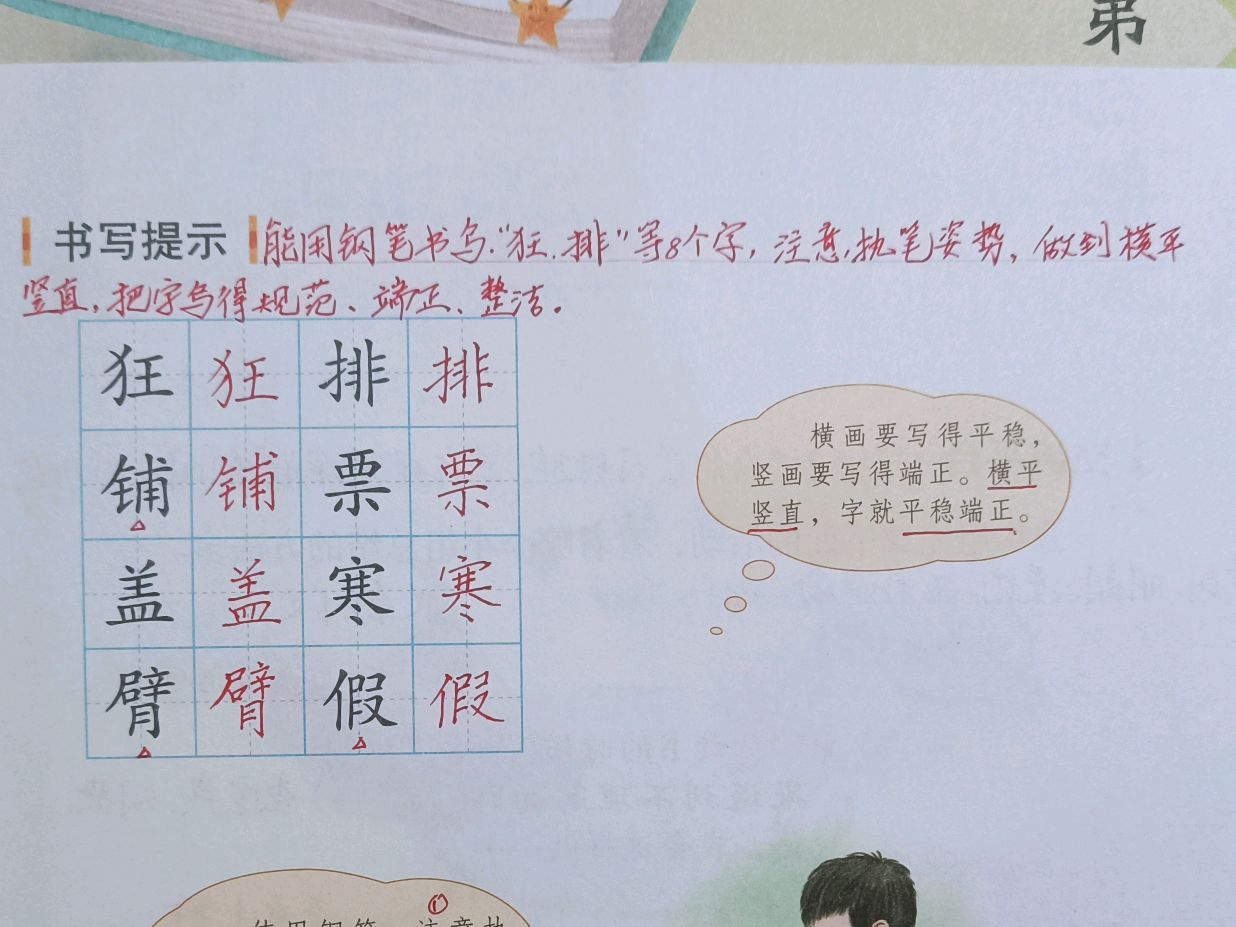 弟
书写提示 能用钢笔书写“狂、排”等8个字，注意执笔姿势，做到横平
竖直，把字写得规范、端正、整洁。
狂 狂 排 排
铺 铺 票 票
盖 盖 寒 寒
臂 臂 假 假
横画要写得平稳，
竖画要写得端正。横平
竖直，字就平稳端正。
①
使用钢笔，注意执